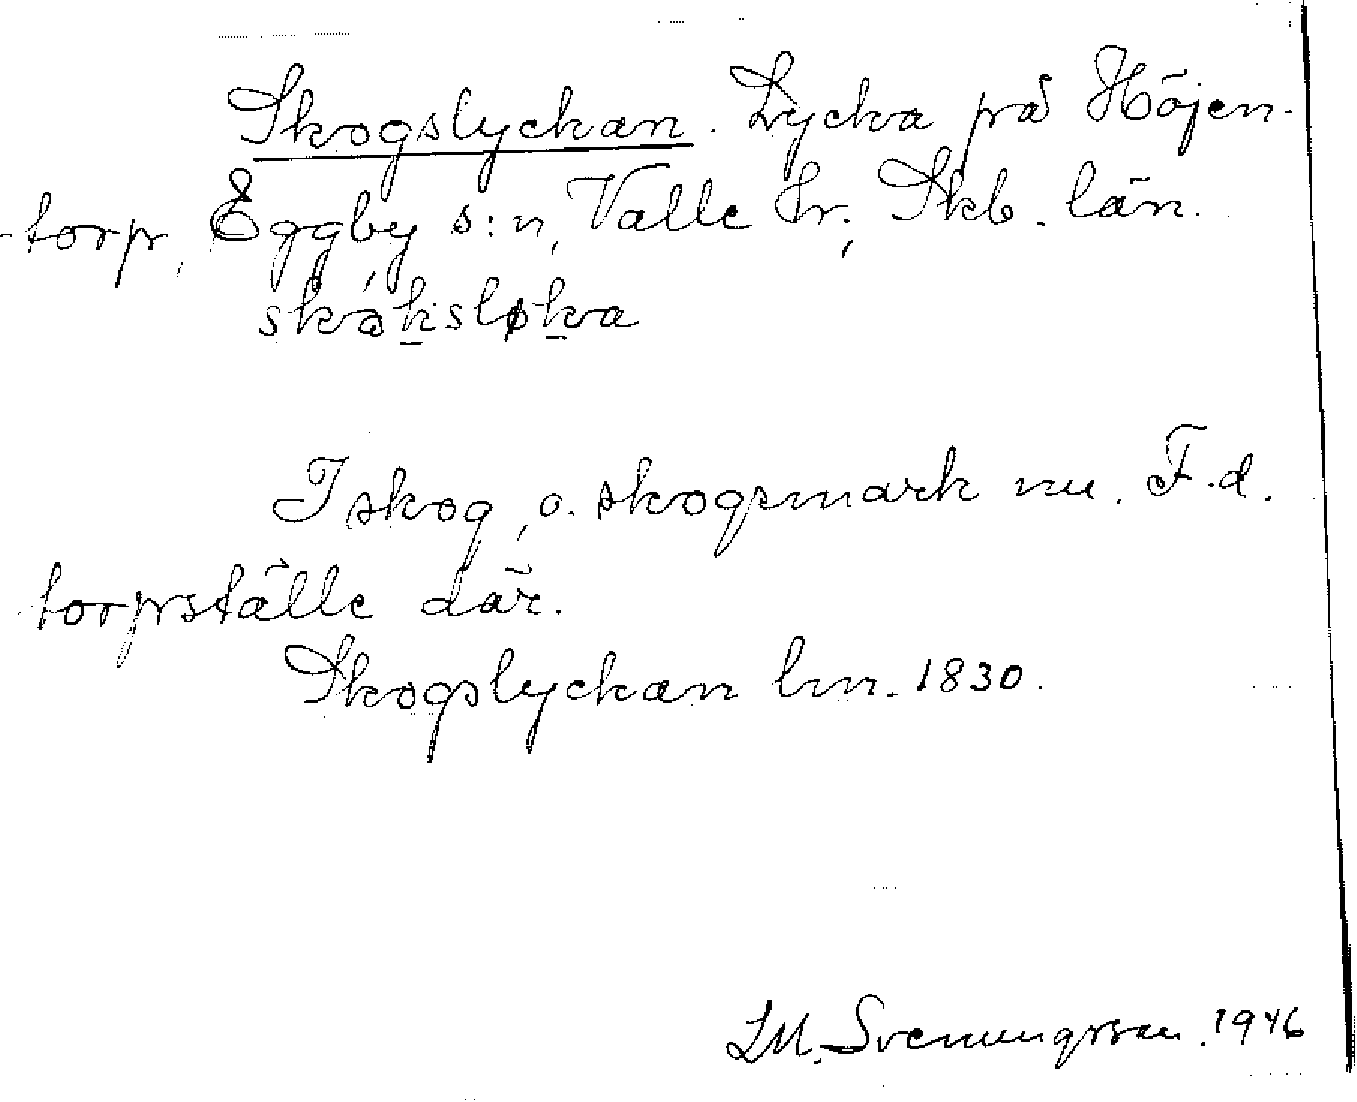 Skogslyckan. Lycka på Höjen-
torp, Eggby s:n, Valle hr., Skb. län.
skɷksløka
I skog o. skogsmark nu. F.d.
torpställe där.
Skogslyckan lm. 1830.
LM. Svenungsson. 1946